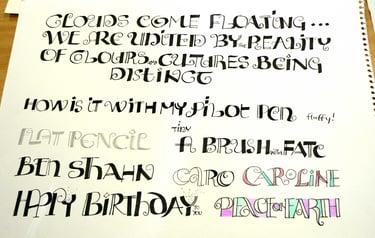 CLOUDS COME FLOATING...
WE ARE UNITED BY THE REALITY
OF COLOURS CULTURES BEING
DISTINCT
HOW IS IT WITH MY PILOT PEN fluffy!
FLAT PENCIL
TINY
A BRUSH WITH FATE
BEN SHAHN
CARO CAROLINE
HAPPY BIRTHDAY TO YOU
PEACE ON EARTH